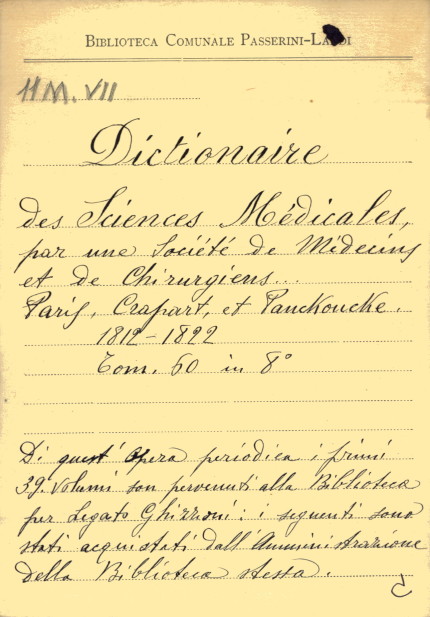 BIBLIOTECA COMUNALE PASSERINI-LANDI
11 M. VII
Dictionaire
des Sciences Médicales,
par une Société de Médecins
et de Chirurgiens...
Paris, Crapart, et Panckoucke.
1812-1822
Tom. 60 in 8°
Di quest' Opera periodica i primi
39. volumi son pervenuti alla Biblioteca
per Legato Ghizzoni: i seguenti sono
stati acquistati dall'Amministrazione
della Biblioteca stessa.